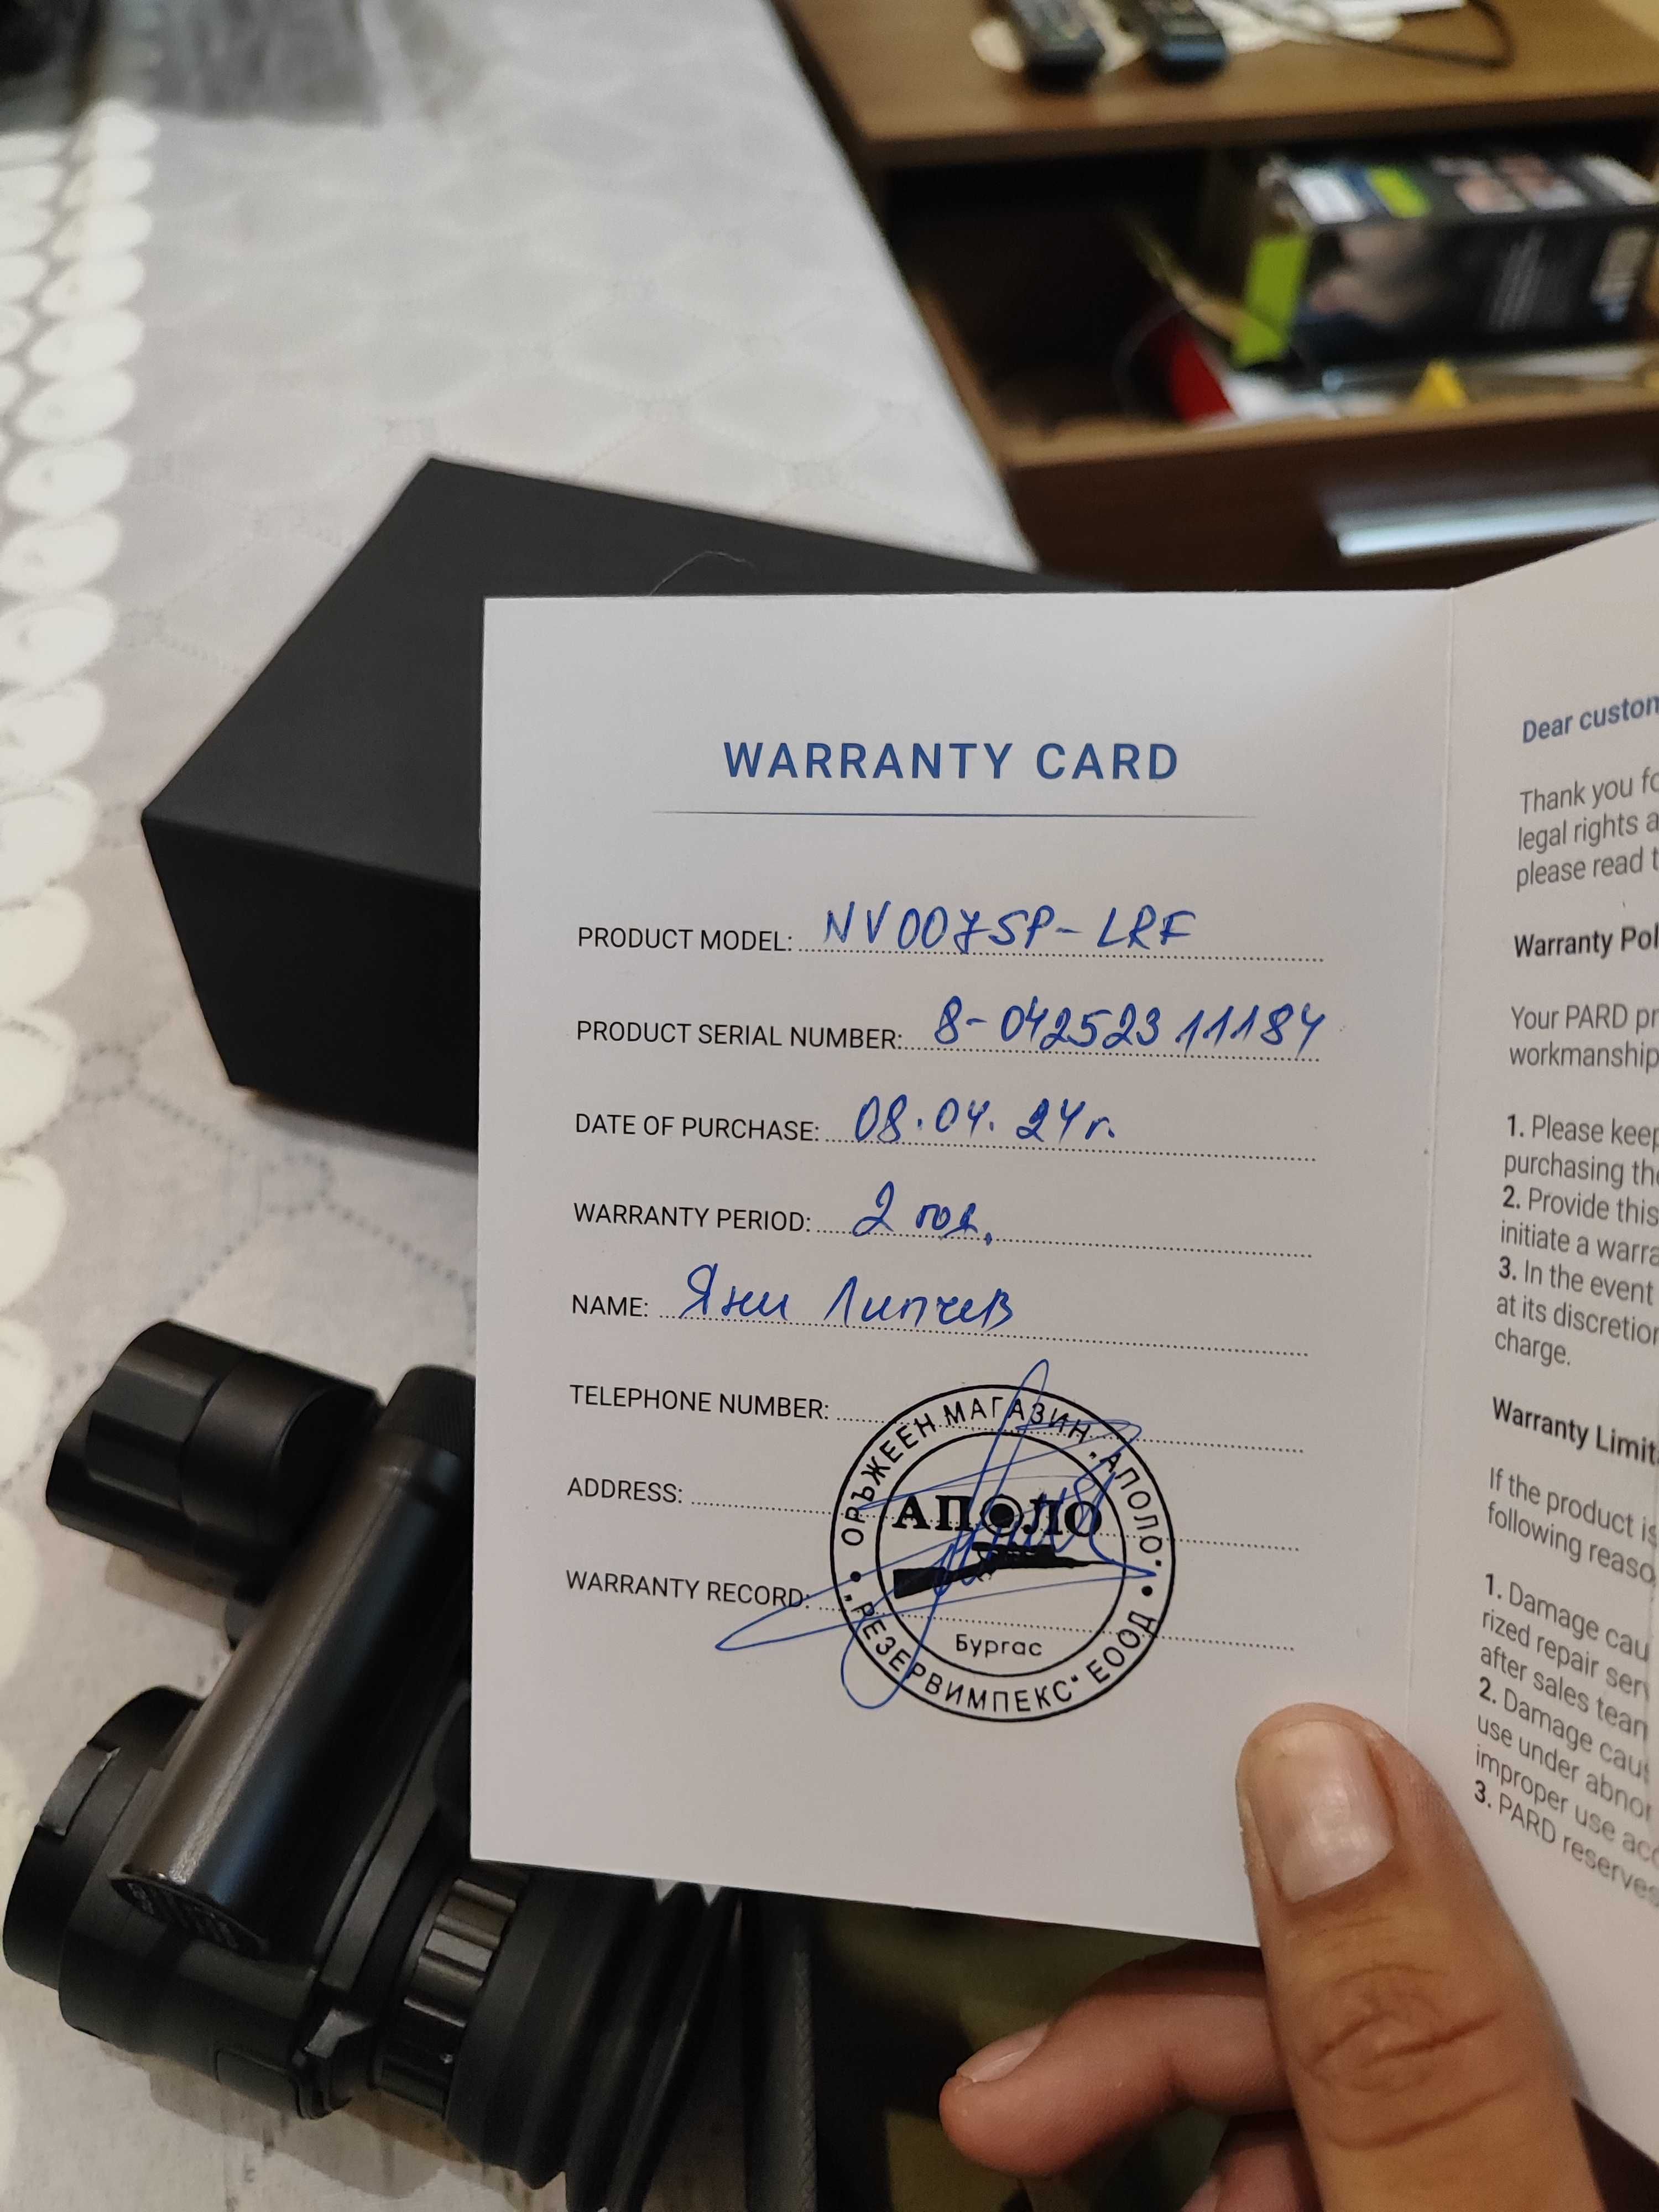 WARRANTY CARD
PRODUCT MODEL: NV007SP-LRF
PRODUCT SERIAL NUMBER: 8-04252311184
DATE OF PURCHASE: 08.04.24г.
WARRANTY PERIOD: 2 год.
NAME: Яни Липчев
TELEPHONE NUMBER:
ADDRESS:
WARRANTY RECORD:
ОРЪЖЕЕН МАГАЗИН „АПОЛО"
АПОЛО
Бургас
„РЕЗЕРВИМПЕКС" ЕООД
Dear
Thank you
legal rights
please read
Warranty
Your PARD
workmanship
1. Please keep
purchasing
2. Provide this
initiate a
3. In the event
at its
charge.
Warranty
If the product is
following
1. Damage
rized repair
after sales
2. Damage
use under
improper use
3. PARD reserves